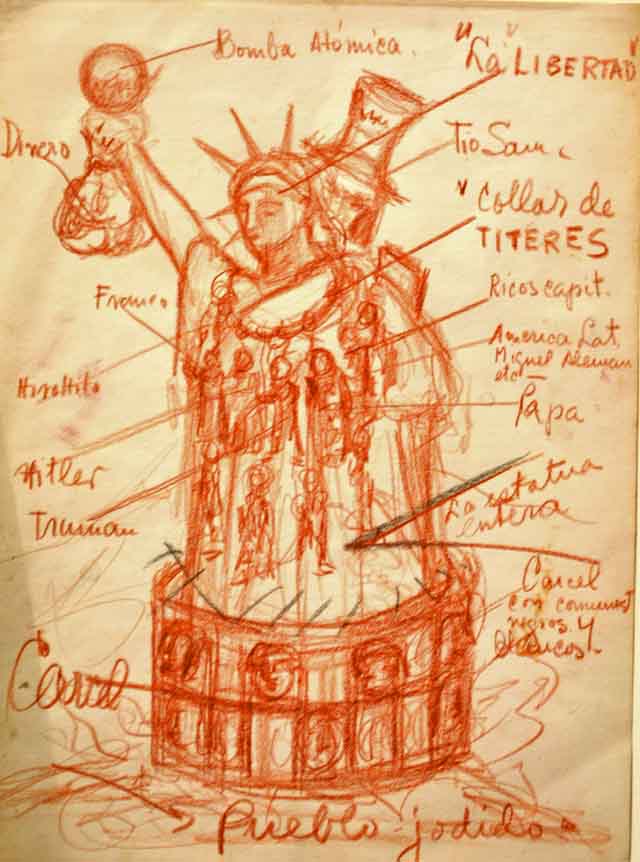 Bomba Atómica.
"La" LIBERTAD"
Dinero
Tio Sam
"Collar de
TITERES
Franco
Ricos capit.
America Lat.
Miguel Aleman
etc —
Hirohito
Papa
Hitler
Truman
La estatua
entera
Carcel
con comunist
negros y
Carcel
Pueblo jodido